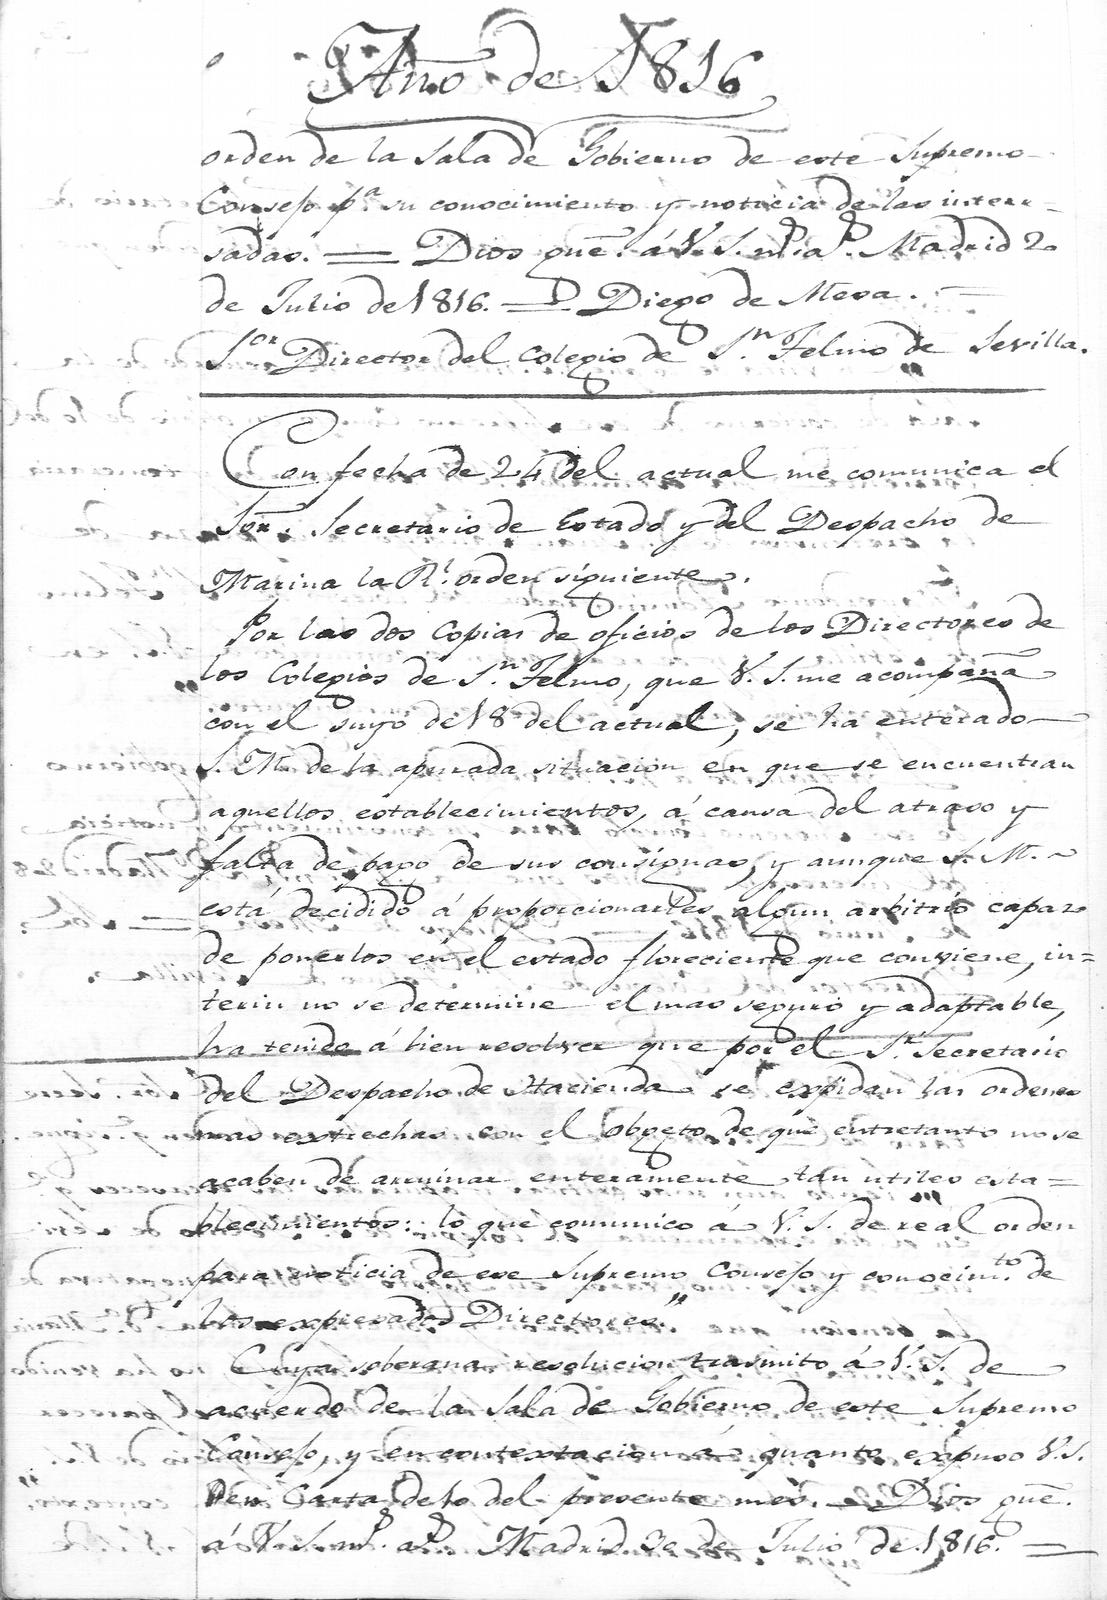 Año de 1816
orden de la Sala de Gobierno de este Supremo
Consejo pa. su conocimiento y noticia de las intere=
sadas. = Dios gue. á V. S. ms. as. Madrid 2
de Julio de 1816. = Diego de Mesa. =
Sor. Director del Colegio de Sn. Telmo de Sevilla.
Con fecha de 24 del actual me comunica el
Sor. Secretario de Estado y del Despacho de
Marina la Rl. orden siguiente.
Por las dos Copias de oficios de los Directores de
los Colegios de Sn. Telmo, que V. S. me acompaña
con el suyo de 18 del actual, se ha enterado
S. M. de la apurada situacion en que se encuentran
aquellos establecimientos, á causa del atraso y
falta de pago de sus consignas, y aunque S. M.
está decidido á proporcionarles algun arbitrio capaz
de ponerlos en el estado floreciente que conviene, in=
terin no se determine el mas seguro y adaptable,
ha tenido á bien resolver que por el Sr. Secretario
del Despacho de Hacienda se expidan las ordenes
mas extrechas con el obgeto de que entretanto no se
acaben de arruinar enteramente tan utiles esta=
blecimientos: lo que comunico á V. S. de real orden
para noticia de ese Supremo Consejo y conocimto. de
los expresados Directores."
Cuya soberana resolucion trasmito á V. S. de
acuerdo de la Sala de Gobierno de este Supremo
Consejo, y en contextacion á quanto expuso V. S.
en Carta de 10 del presente mes. = Dios gue.
á V. S. ms. as. Madrid 30 de Julio de 1816. =